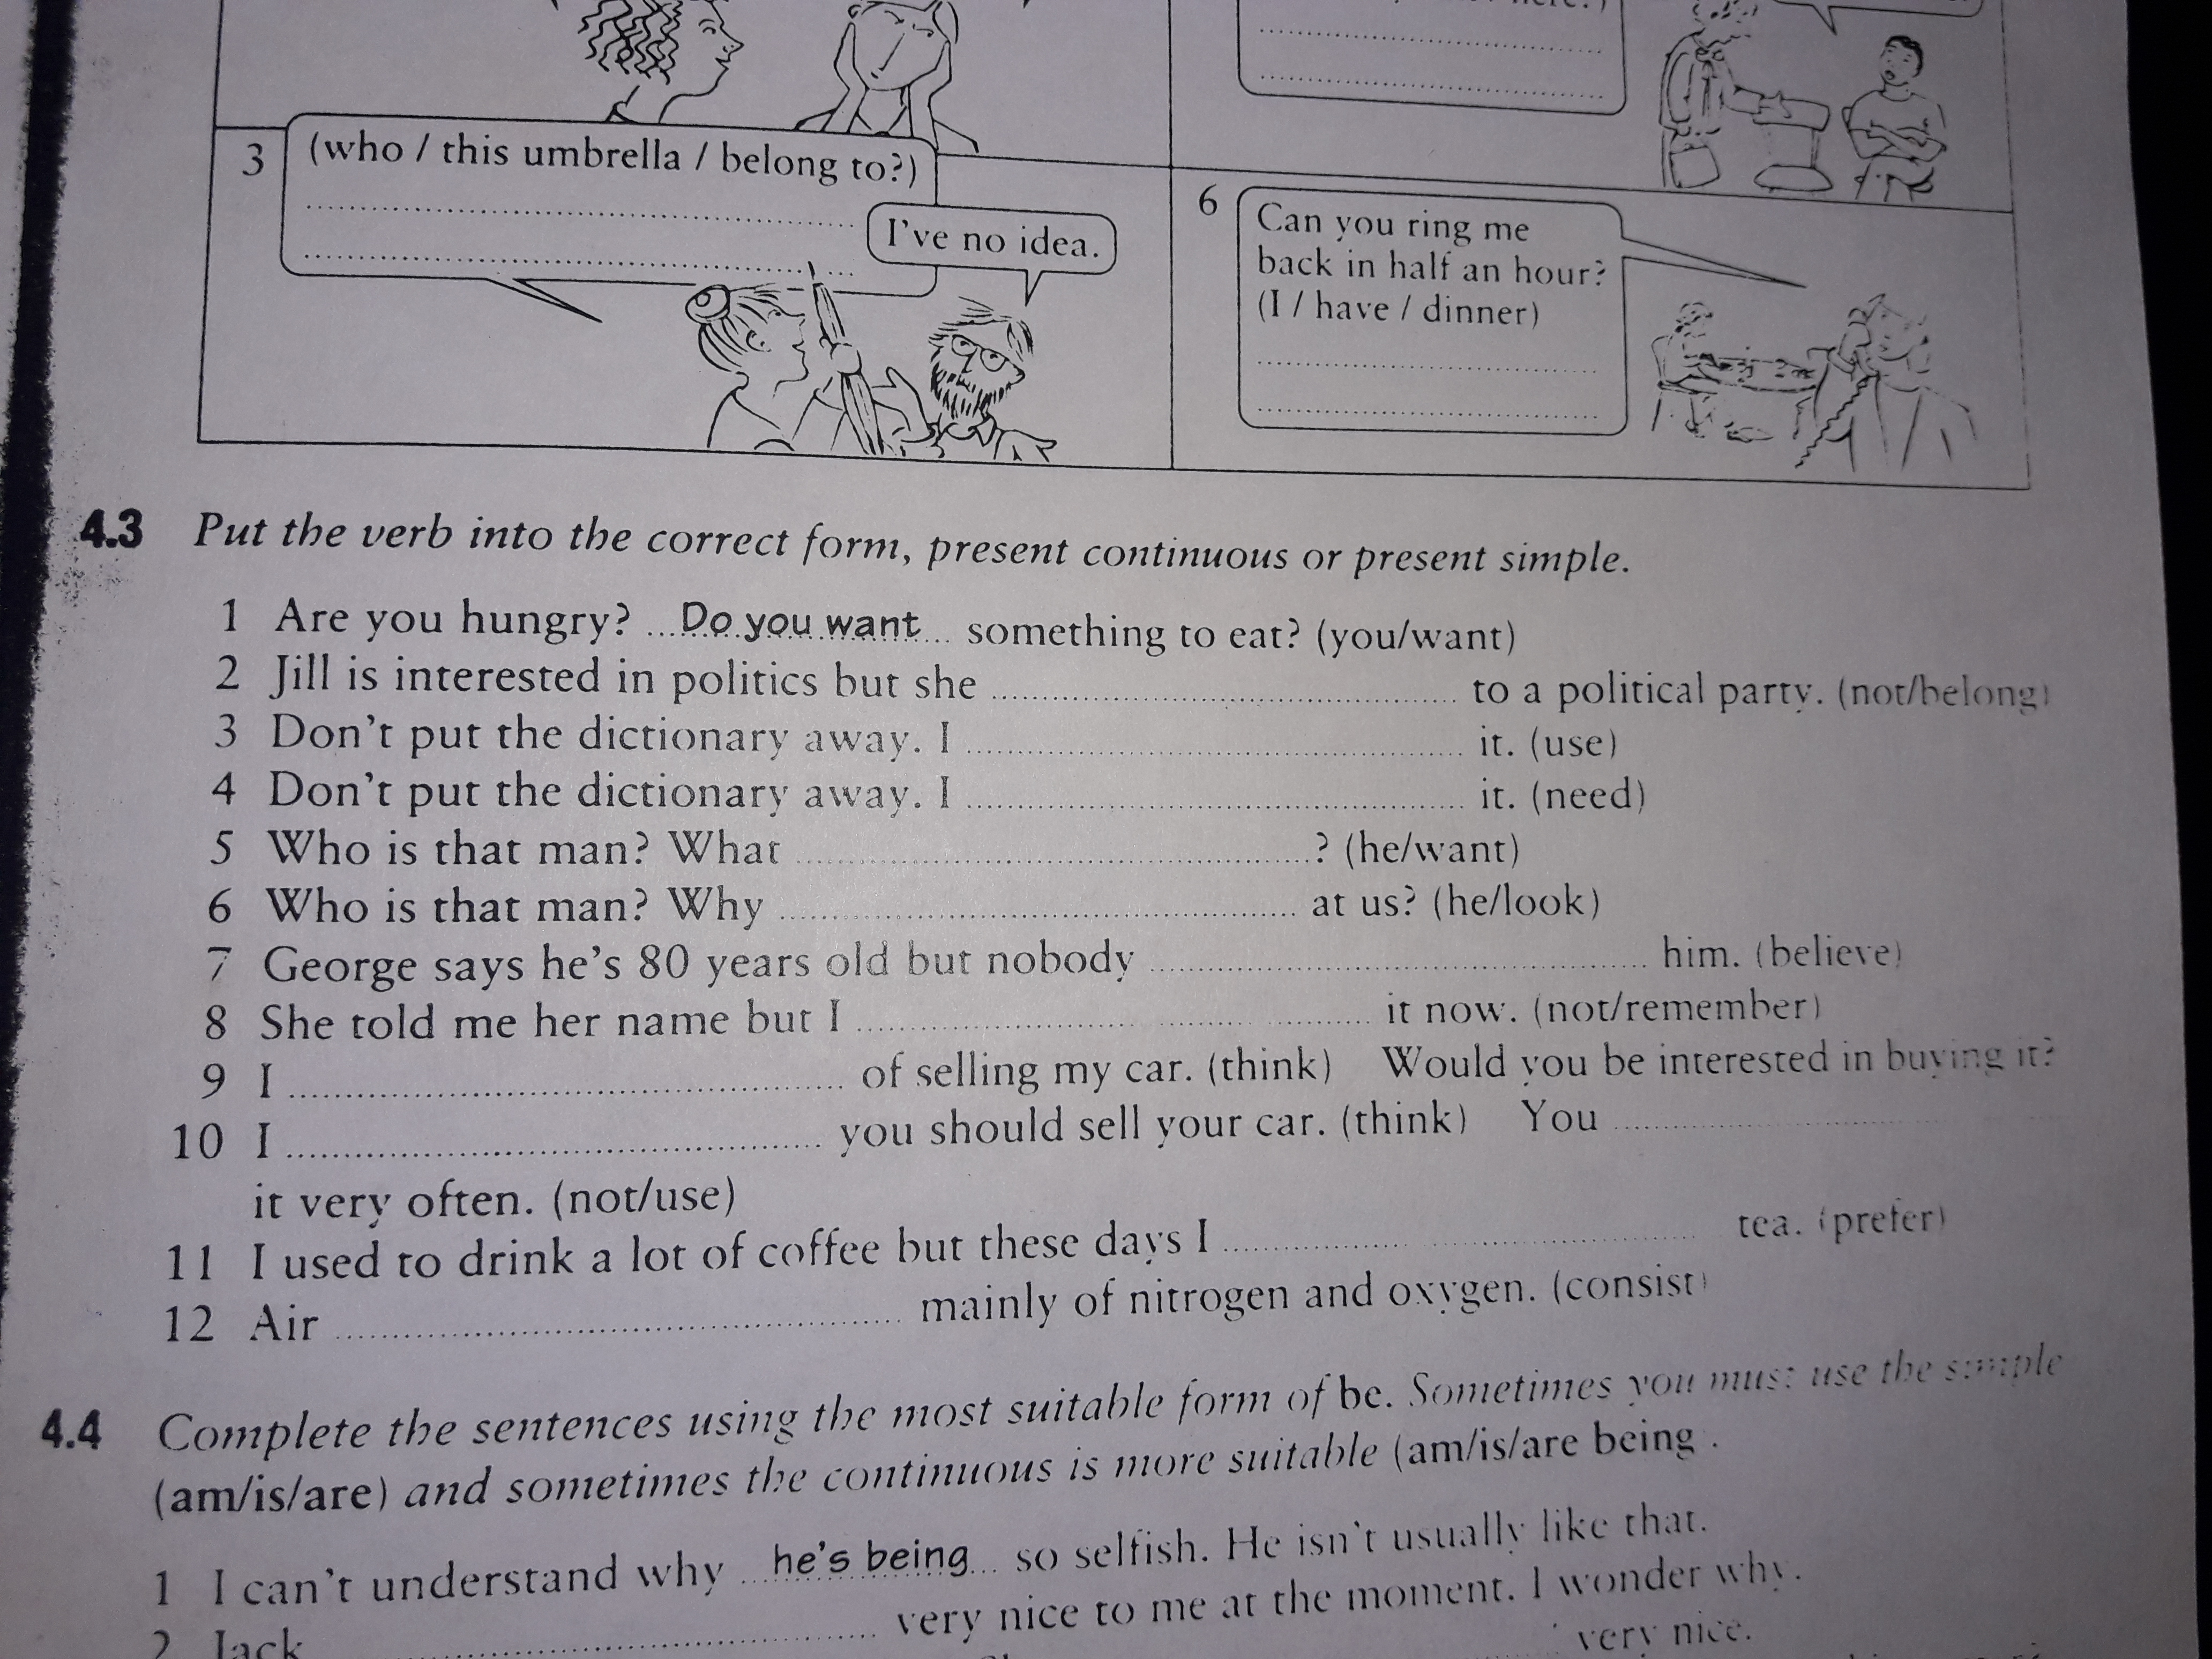 3 (who / this umbrella / belong to?)
I've no idea.
6 Can you ring me
back in half an hour?
(I / have / dinner)
4.3 Put the verb into the correct form, present continuous or present simple.
1 Are you hungry? Do you want something to eat? (you/want)
2 Jill is interested in politics but she .......... to a political party. (not/belong)
3 Don't put the dictionary away. I .......... it. (use)
4 Don't put the dictionary away. I .......... it. (need)
5 Who is that man? What ..........? (he/want)
6 Who is that man? Why .......... at us? (he/look)
7 George says he's 80 years old but nobody .......... him. (believe)
8 She told me her name but I .......... it now. (not/remember)
9 I .......... of selling my car. (think) Would you be interested in buying it?
10 I .......... you should sell your car. (think) You ..........
it very often. (not/use)
11 I used to drink a lot of coffee but these days I .......... tea. (prefer)
12 Air .......... mainly of nitrogen and oxygen. (consist)
4.4 Complete the sentences using the most suitable form of be. Sometimes you must use the simple
(am/is/are) and sometimes the continuous is more suitable (am/is/are being .
1 I can't understand why he's being so selfish. He isn't usually like that.
2 Jack .......... very nice to me at the moment. I wonder why.
very nice.